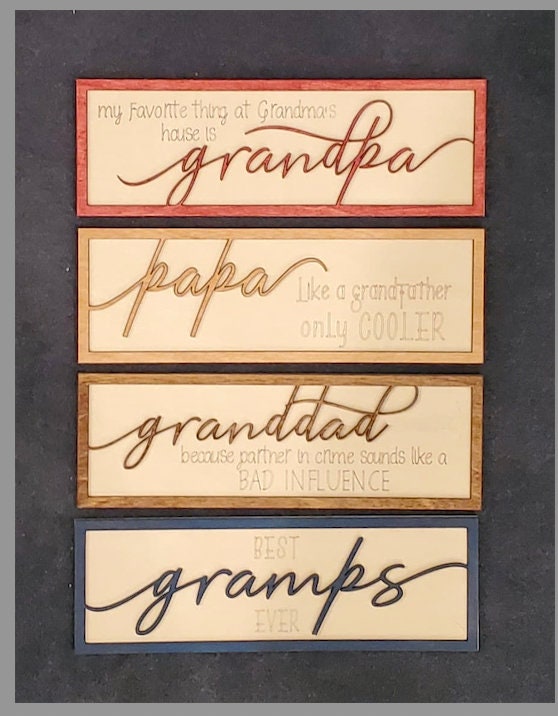 my Favorite thing at Grandma's
house is
grandpa
papa
Like a grandfather
only COOLER
granddad
because partner in crime sounds like a
BAD INFLUENCE
BEST
gramps
EVER